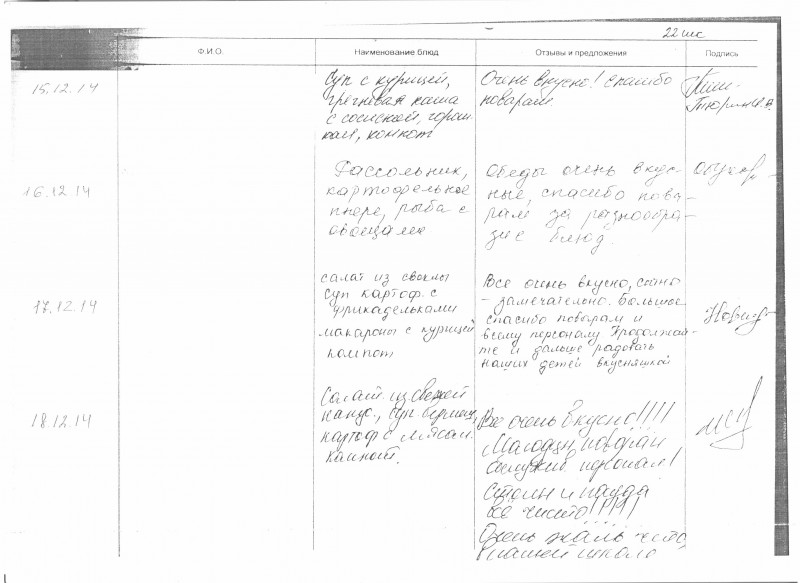 22 шк
Ф.И.О. Наименование блюд Отзывы и предложения Подпись
15.12.14
Суп с курицей,
гречневая каша
с сосиской, горош
ком, компот
Очень вкусно! Спасибо
поварам
16.12.14
Рассольник,
картофельное
пюре, рыба с
овощами
Обеды очень вкус-
ные, спасибо пова-
рам за разнообра-
зие блюд.
17.12.14
салат из свеклы
Суп картоф. с
фрикадельками
макароны с курицей
компот
Все очень вкусно, сытно
- замечательно. Большое
спасибо поварам и
всему персоналу Продолжай-
те и дальше радовать
наших детей вкусняшкой
18.12.14
Салат из свежей
капус., суп вермиш,
картоф с мясом.
компот.
Все очень вкусно!!!!
Молодцы, повора и
персонал!
Столы и посуда
все чисто!!!!!!
Очень жаль что
нашей школе